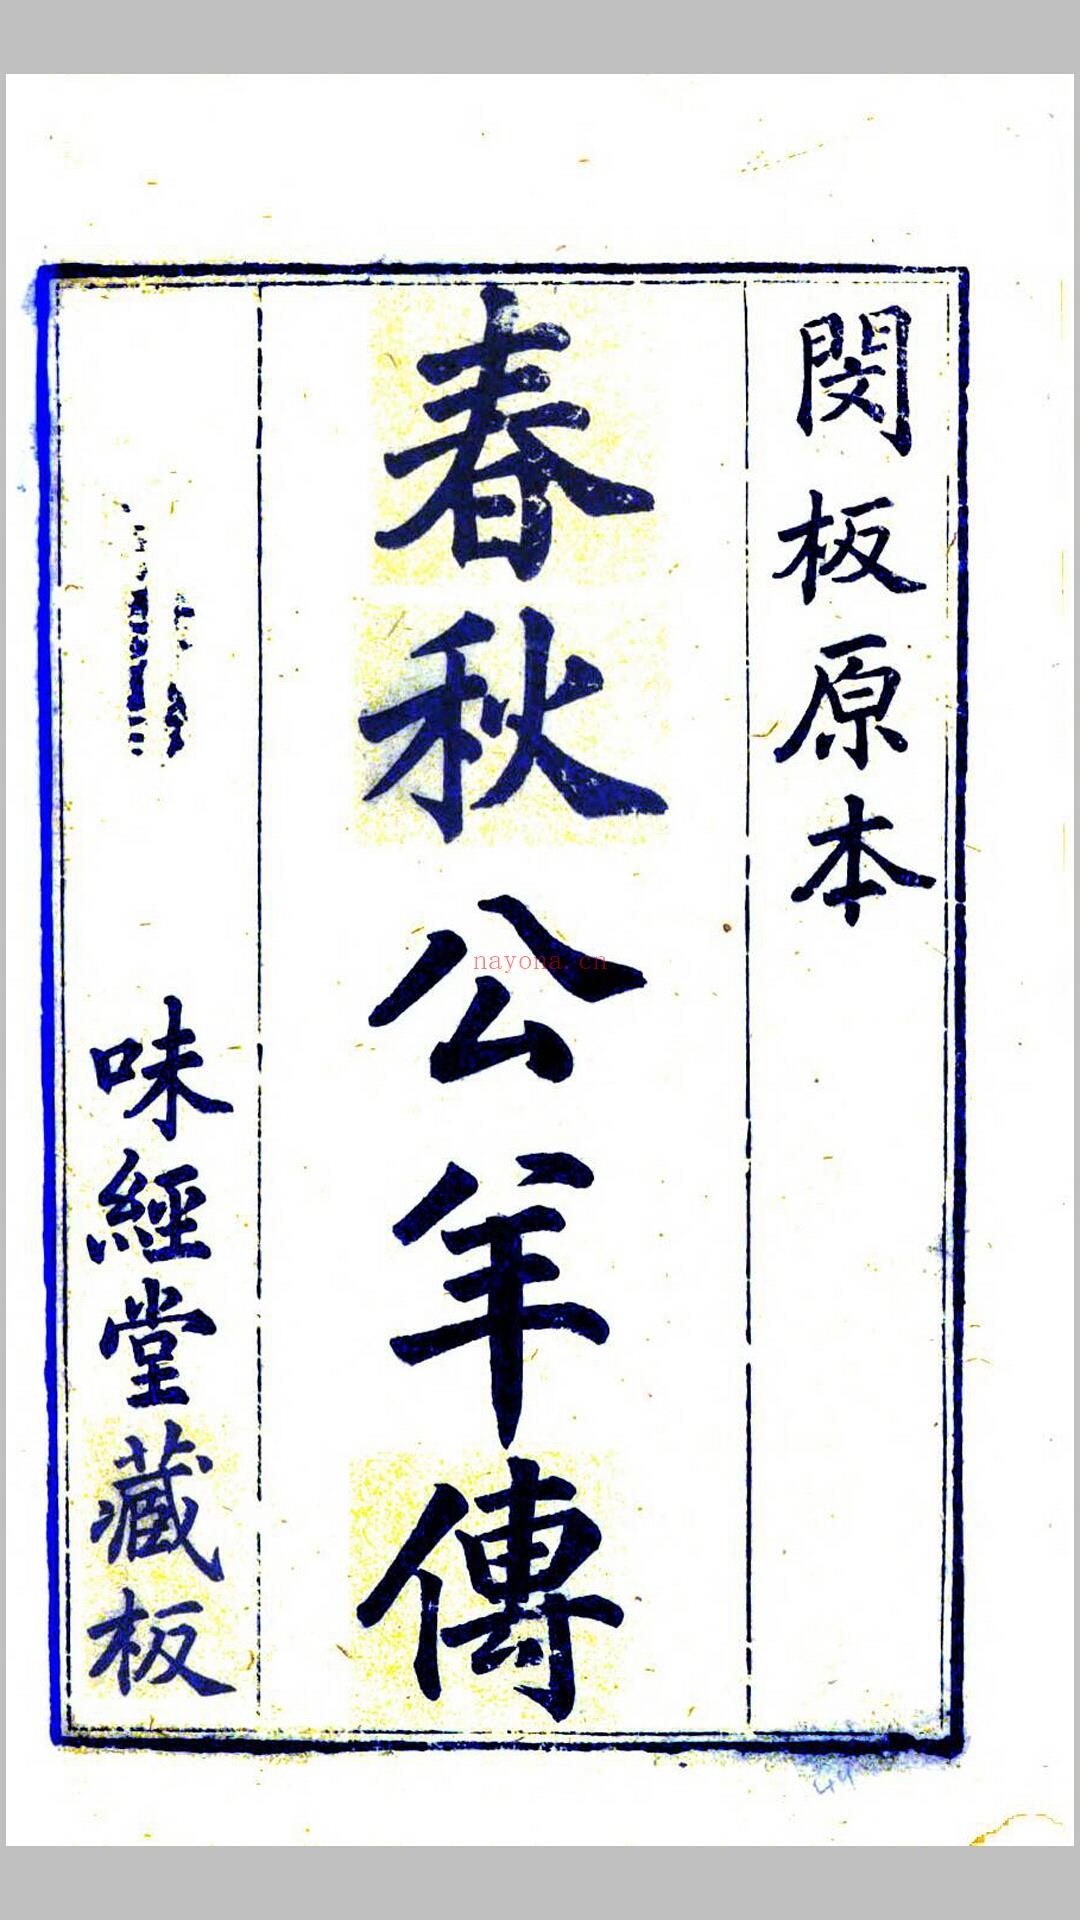 閔板原本
春秋公羊傳
味經堂藏板
nayona.cn